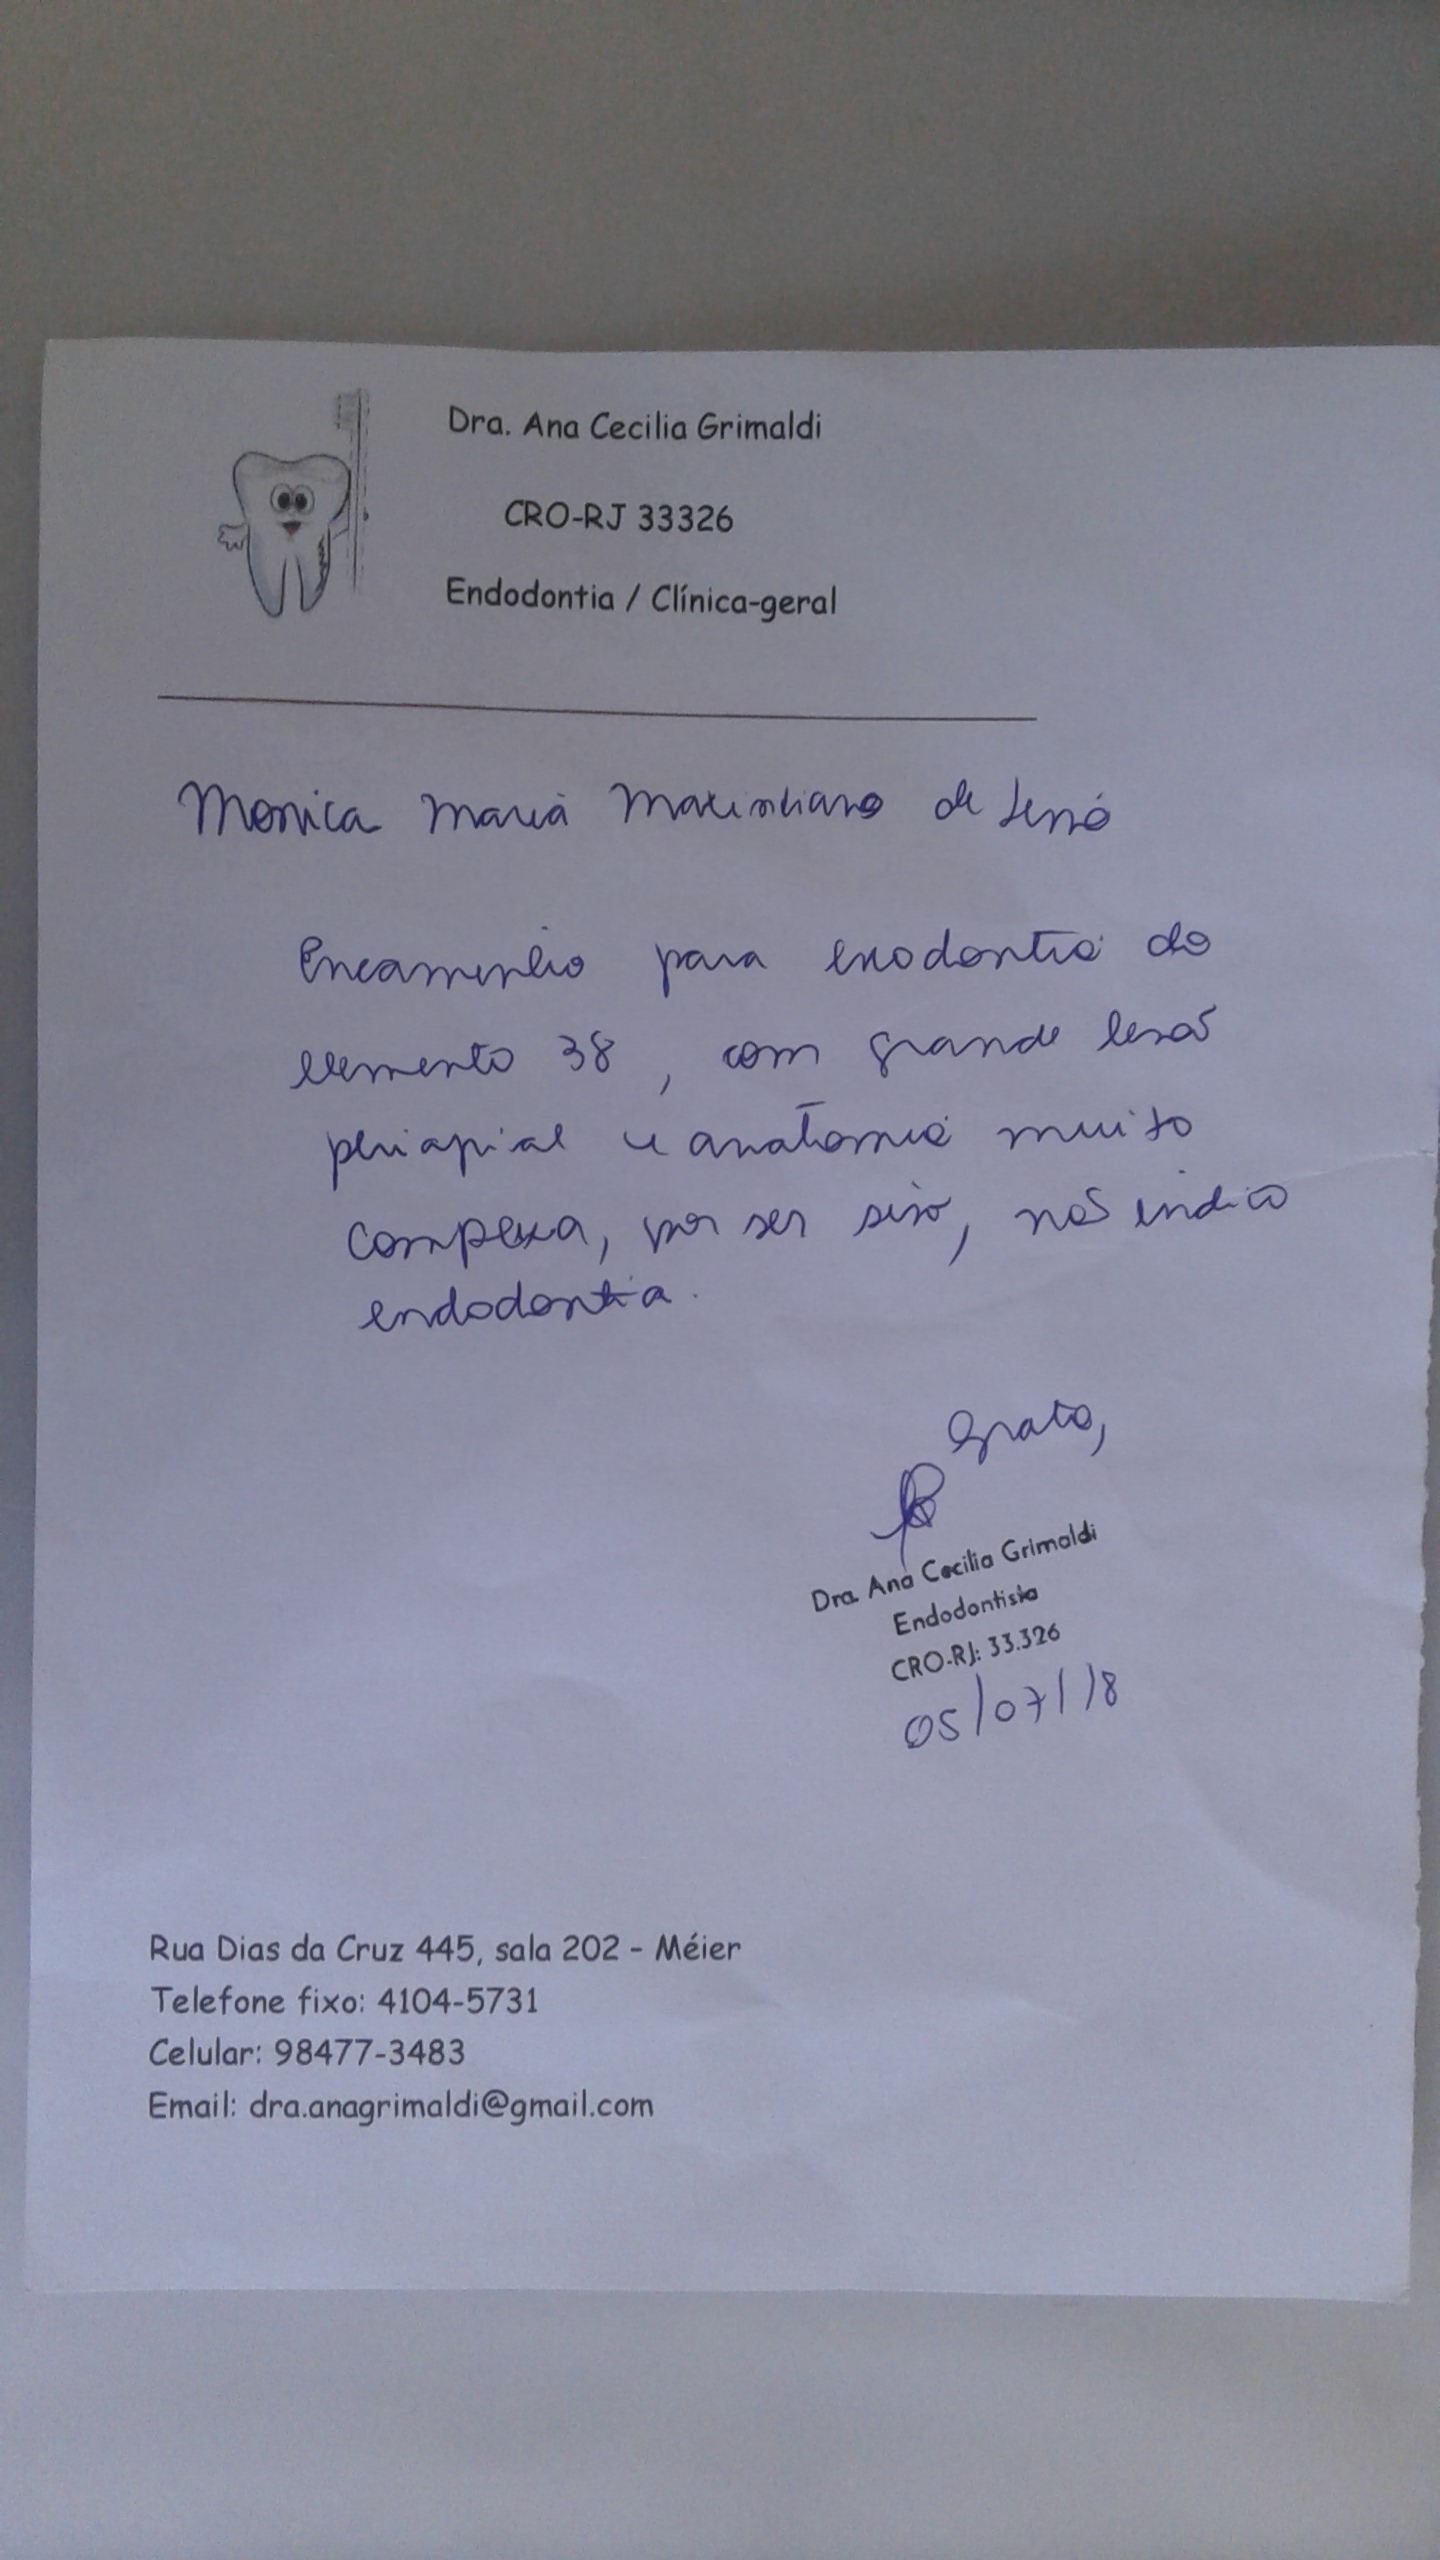 Dra. Ana Cecilia Grimaldi
CRO-RJ 33326
Endodontia / Clínica-geral
Monica Maria Maximiano de
Encaminho para exodontia do
elemento 38, com grande lesão
periapial e anatomia muito
compexa, por ser siso, não indico
endodontia.
Grata,
Dra. Ana Cecilia Grimaldi
Endodontista
CRO-RJ: 33.326
05/07/18
Rua Dias da Cruz 445, sala 202 - Méier
Telefone fixo: 4104-5731
Celular: 98477-3483
Email: dra.anagrimaldi@gmail.com